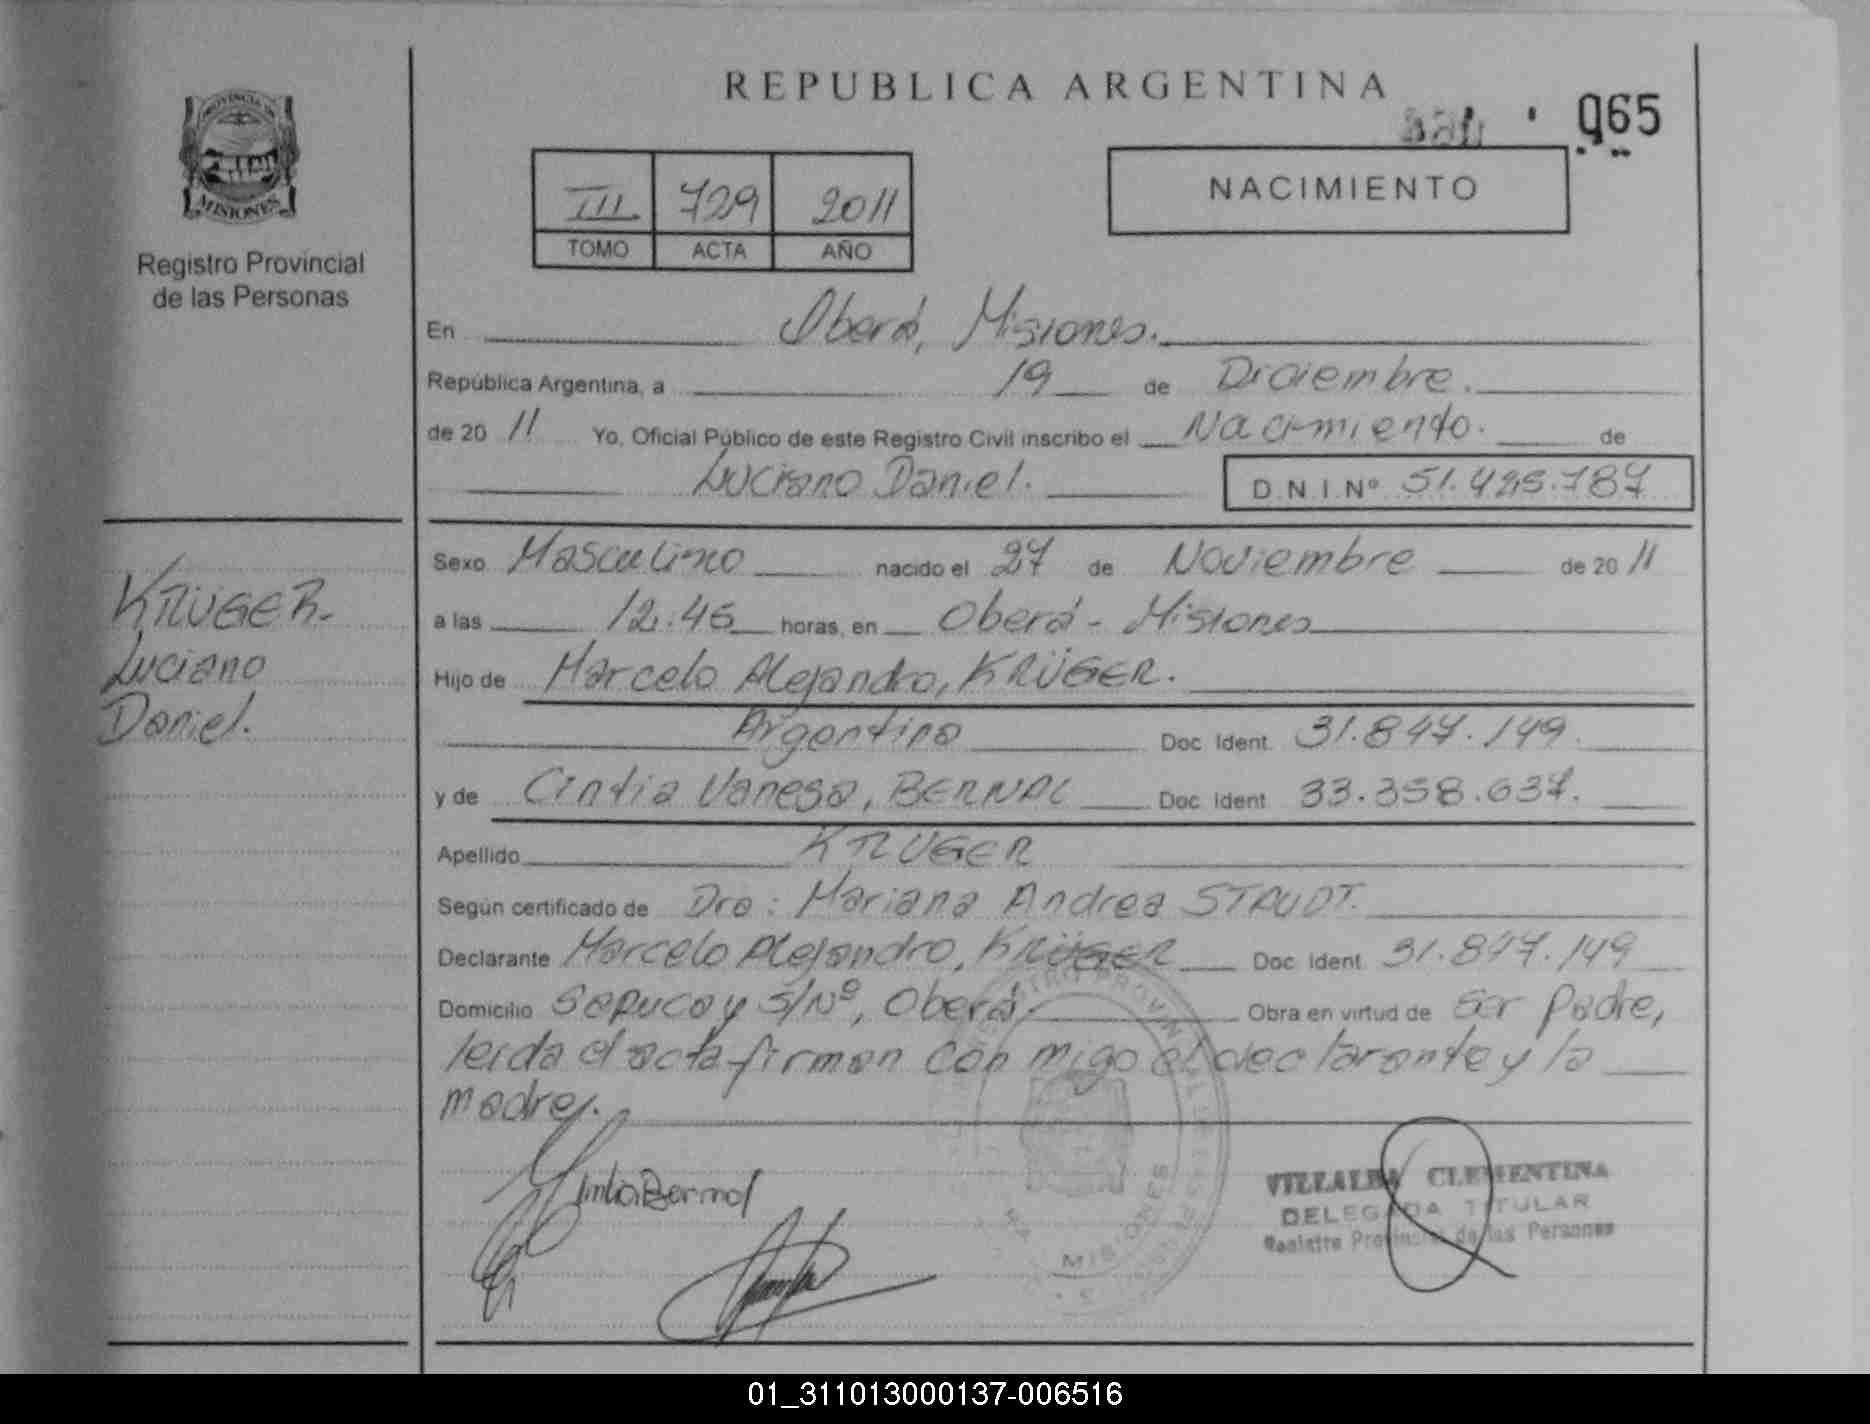 REPUBLICA ARGENTINA
065
PROVINCIA DE
MISIONES
Registro Provincial
de las Personas
III 729 2011
TOMO ACTA AÑO
NACIMIENTO
En Oberá, Misiones.
República Argentina, a 19 de Diciembre.
de 20 11 Yo, Oficial Público de este Registro Civil inscribo el Nacimiento. de
Luciano Daniel. D.N.I.Nº 51.425.787
Sexo Masculino nacido el 27 de Noviembre de 20 11
a las 12.45 horas, en Oberá - Misiones
Hijo de Marcelo Alejandro, KRÜGER.
Argentino Doc Ident. 31.847.149.
y de Cintia Vanesa, BERNAL Doc Ident. 33.358.637.
Apellido KRUGER
Según certificado de Dra: Mariana Andrea STAUDT.
Declarante Marcelo Alejandro, KRÜGER Doc Ident. 31.847.149
Domicilio Sapucay S/Nº, Oberá. Obra en virtud de Ser Padre,
leida el acta firman con migo el declarante y la
madre.
KRÜGER.
Luciano
Daniel.
Cintia Bernal
MISIONES
VILLALBA CLEMENTINA
DELEGADA TITULAR
Registro Provincial de las Personas
01_311013000137-006516